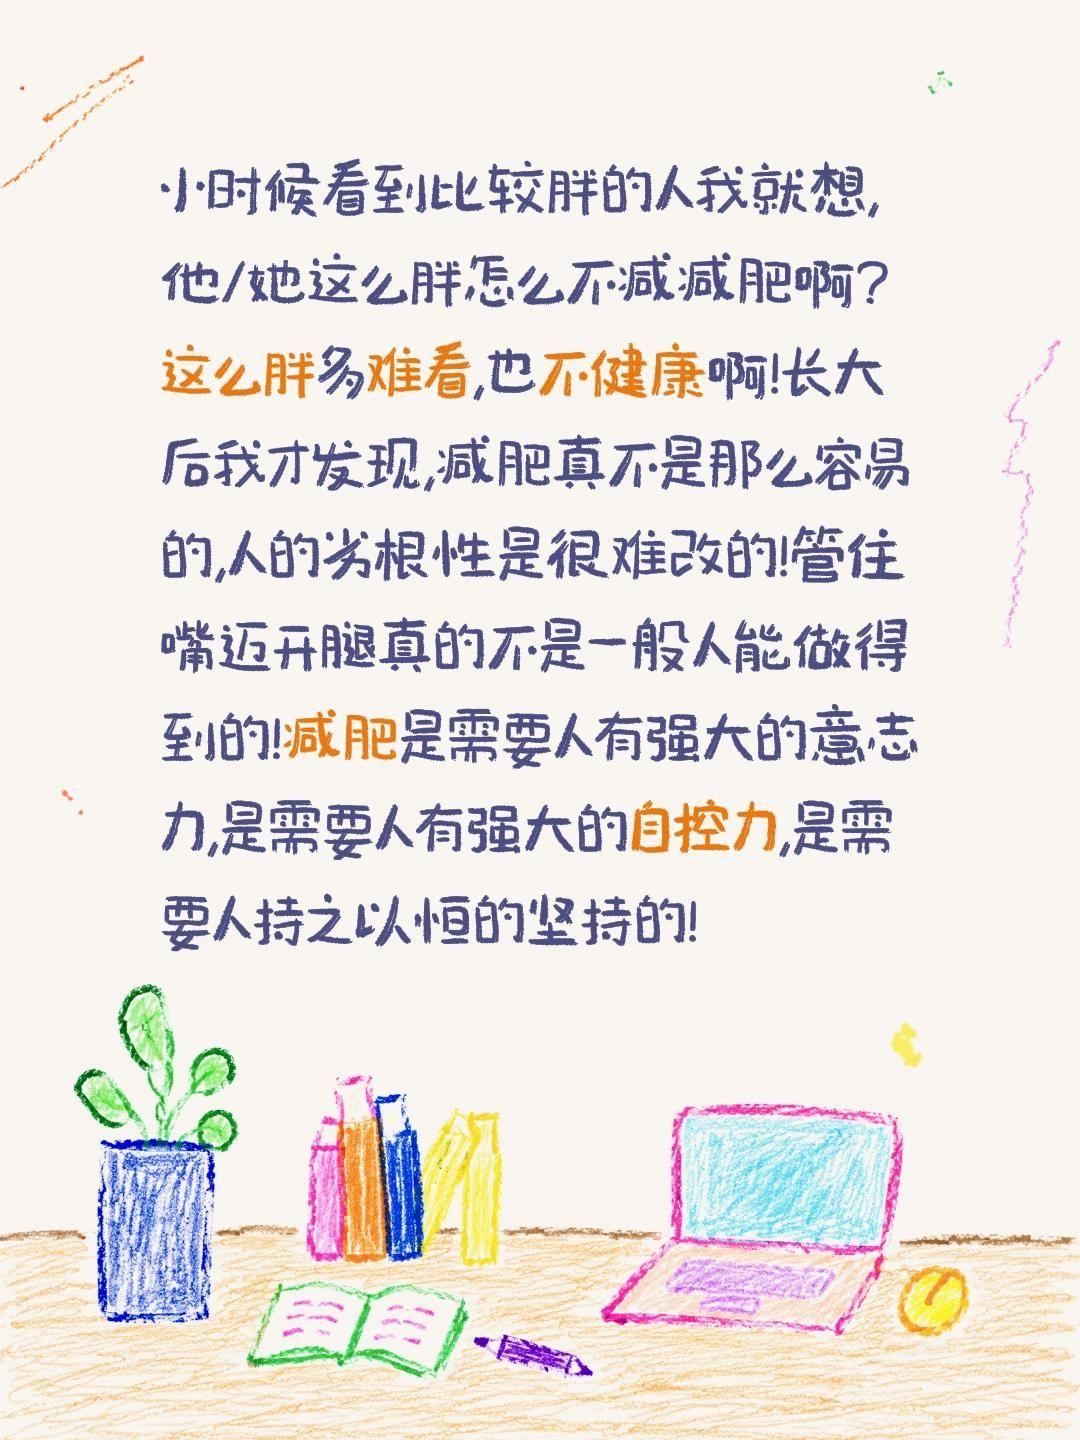 小时候看到比较胖的人我就想,
他/她这么胖怎么不减减肥啊?
这么胖多难看,也不健康啊!长大
后我才发现,减肥真不是那么容易
的,人的劣根性是很难改的!管住
嘴迈开腿真的不是一般人能做得
到的!减肥是需要人有强大的意志
力,是需要人有强大的自控力,是需
要人持之以恒的坚持的!